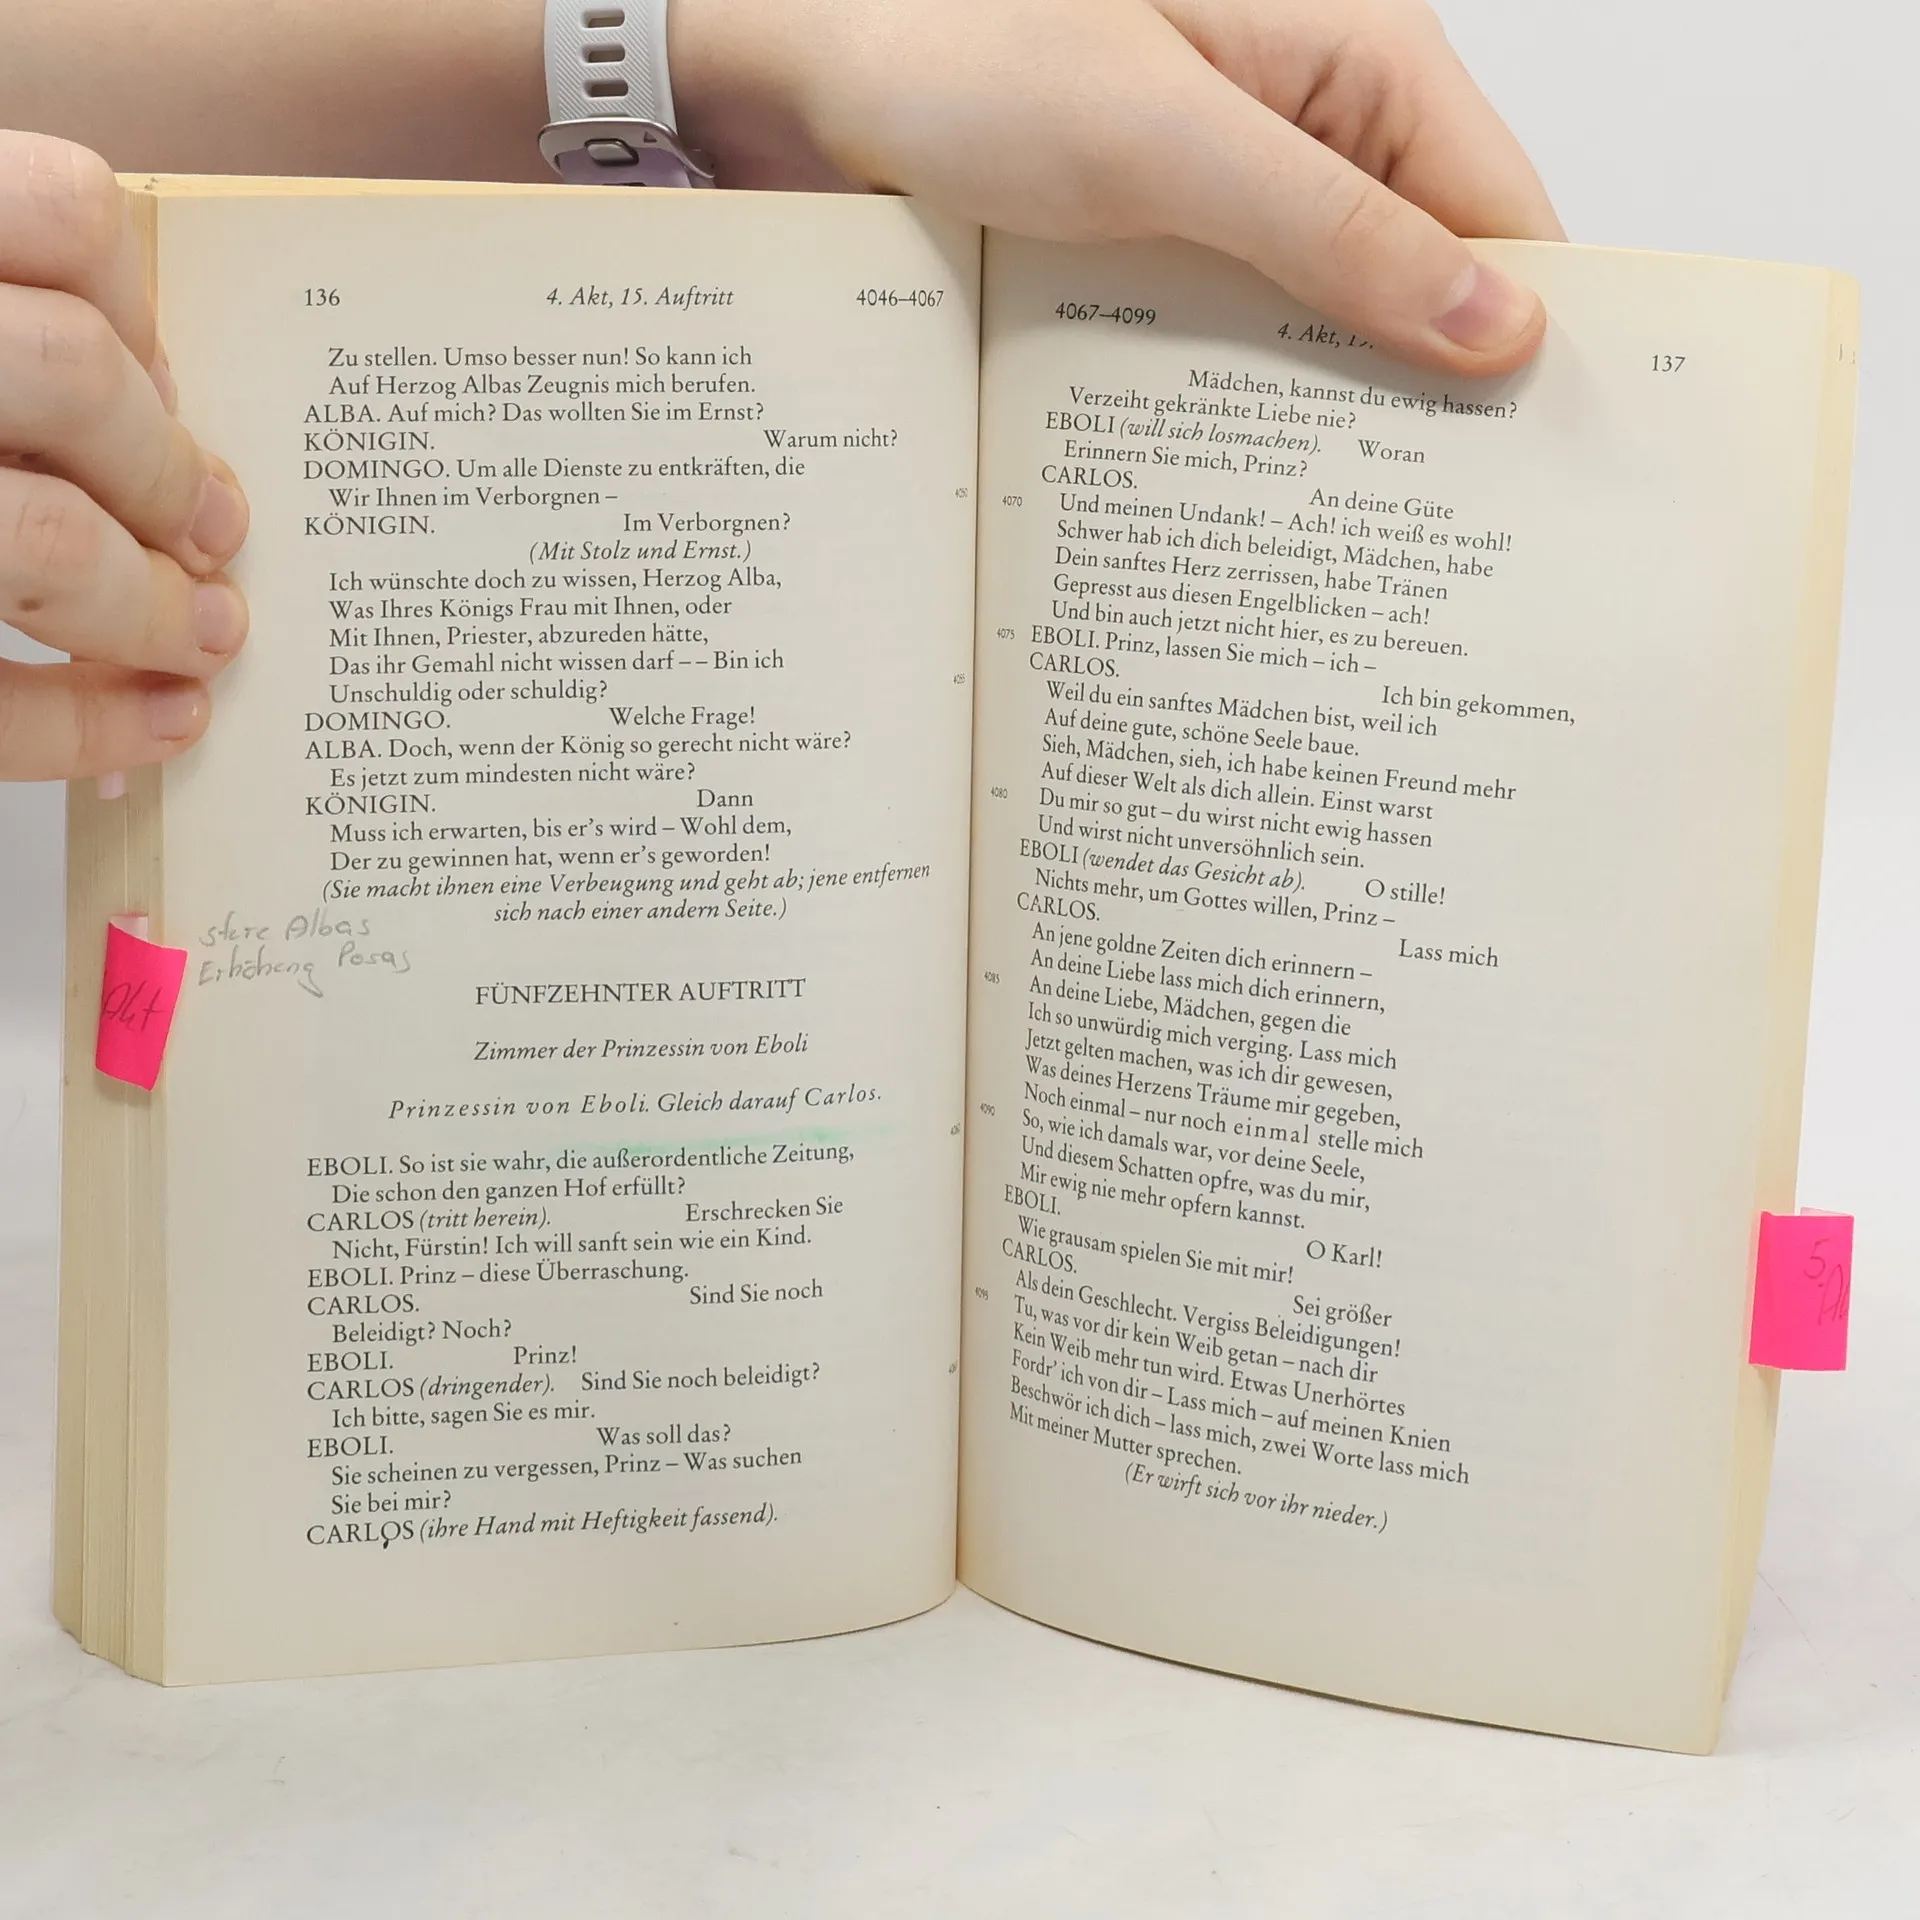 136 4. Akt, 15. Auftritt 4046–4067
Zu stellen. Umso besser nun! So kann ich
Auf Herzog Albas Zeugnis mich berufen.
ALBA. Auf mich? Das wollten Sie im Ernst?
KÖNIGIN. Warum nicht?
DOMINGO. Um alle Dienste zu entkräften, die
Wir Ihnen im Verborgnen – 4050
KÖNIGIN. Im Verborgnen?
(Mit Stolz und Ernst.)
Ich wünschte doch zu wissen, Herzog Alba,
Was Ihres Königs Frau mit Ihnen, oder
Mit Ihnen, Priester, abzureden hätte,
Das ihr Gemahl nicht wissen darf – – Bin ich
Unschuldig oder schuldig? 4055
DOMINGO. Welche Frage!
ALBA. Doch, wenn der König so gerecht nicht wäre?
Es jetzt zum mindesten nicht wäre?
KÖNIGIN. Dann
Muss ich erwarten, bis er's wird – Wohl dem,
Der zu gewinnen hat, wenn er's geworden!
(Sie macht ihnen eine Verbeugung und geht ab; jene entfernen
sich nach einer andern Seite.)
Albas
Erhöhung Posas
Akt
FÜNFZEHNTER AUFTRITT
Zimmer der Prinzessin von Eboli
Prinzessin von Eboli. Gleich darauf Carlos.
EBOLI. So ist sie wahr, die außerordentliche Zeitung, 4060
Die schon den ganzen Hof erfüllt?
CARLOS (tritt herein). Erschrecken Sie
Nicht, Fürstin! Ich will sanft sein wie ein Kind.
EBOLI. Prinz – diese Überraschung.
CARLOS. Sind Sie noch
Beleidigt? Noch?
EBOLI. Prinz!
CARLOS (dringender). Sind Sie noch beleidigt? 4065
Ich bitte, sagen Sie es mir.
EBOLI. Was soll das?
Sie scheinen zu vergessen, Prinz – Was suchen
Sie bei mir?
CARLOS (ihre Hand mit Heftigkeit fassend).
4067–4099 4. Akt, 137
Mädchen, kannst du ewig hassen?
Verzeiht gekränkte Liebe nie?
EBOLI (will sich losmachen). Woran
Erinnern Sie mich, Prinz?
CARLOS. An deine Güte
4070 Und meinen Undank! – Ach! ich weiß es wohl!
Schwer hab ich dich beleidigt, Mädchen, habe
Dein sanftes Herz zerrissen, habe Tränen
Gepresst aus diesen Engelblicken – ach!
Und bin auch jetzt nicht hier, es zu bereuen.
4075 EBOLI. Prinz, lassen Sie mich – ich –
CARLOS. Ich bin gekommen,
Weil du ein sanftes Mädchen bist, weil ich
Auf deine gute, schöne Seele baue.
Sieh, Mädchen, sieh, ich habe keinen Freund mehr
Auf dieser Welt als dich allein. Einst warst
4080 Du mir so gut – du wirst nicht ewig hassen
Und wirst nicht unversöhnlich sein.
EBOLI (wendet das Gesicht ab). O stille!
Nichts mehr, um Gottes willen, Prinz –
CARLOS. Lass mich
An jene goldne Zeiten dich erinnern –
An deine Liebe lass mich dich erinnern,
4085 An deine Liebe, Mädchen, gegen die
Ich so unwürdig mich verging. Lass mich
Jetzt gelten machen, was ich dir gewesen,
Was deines Herzens Träume mir gegeben,
Noch einmal – nur noch einmal stelle mich
4090 So, wie ich damals war, vor deine Seele,
Und diesem Schatten opfre, was du mir,
Mir ewig nie mehr opfern kannst.
EBOLI. O Karl!
Wie grausam spielen Sie mit mir!
CARLOS. Sei größer
Als dein Geschlecht. Vergiss Beleidigungen!
4095 Tu, was vor dir kein Weib getan – nach dir
Kein Weib mehr tun wird. Etwas Unerhörtes
Fordr' ich von dir – Lass mich – auf meinen Knien
Beschwör ich dich – lass mich, zwei Worte lass mich
Mit meiner Mutter sprechen.
(Er wirft sich vor ihr nieder.)
5.